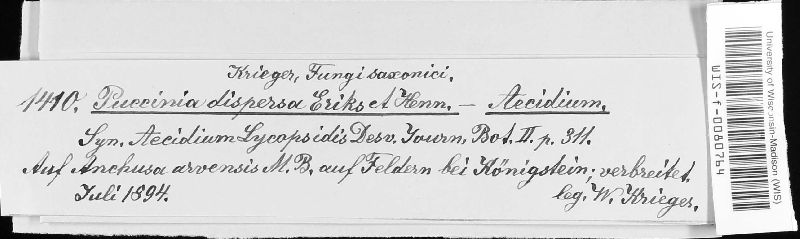 Krieger, Fungi saxonici.
1410. Puccinia dispersa Eriks et Henn. — Aecidium.
Syn. Aecidium Lycopsidis Desv. Journ. Bot. II. p. 311.
Auf Anchusa arvensis M. B. auf Feldern bei Königstein; verbreitet.
Juli 1894. leg. W. Krieger.
University of Wisconsin-Madison (WIS)
WIS-f-0080764